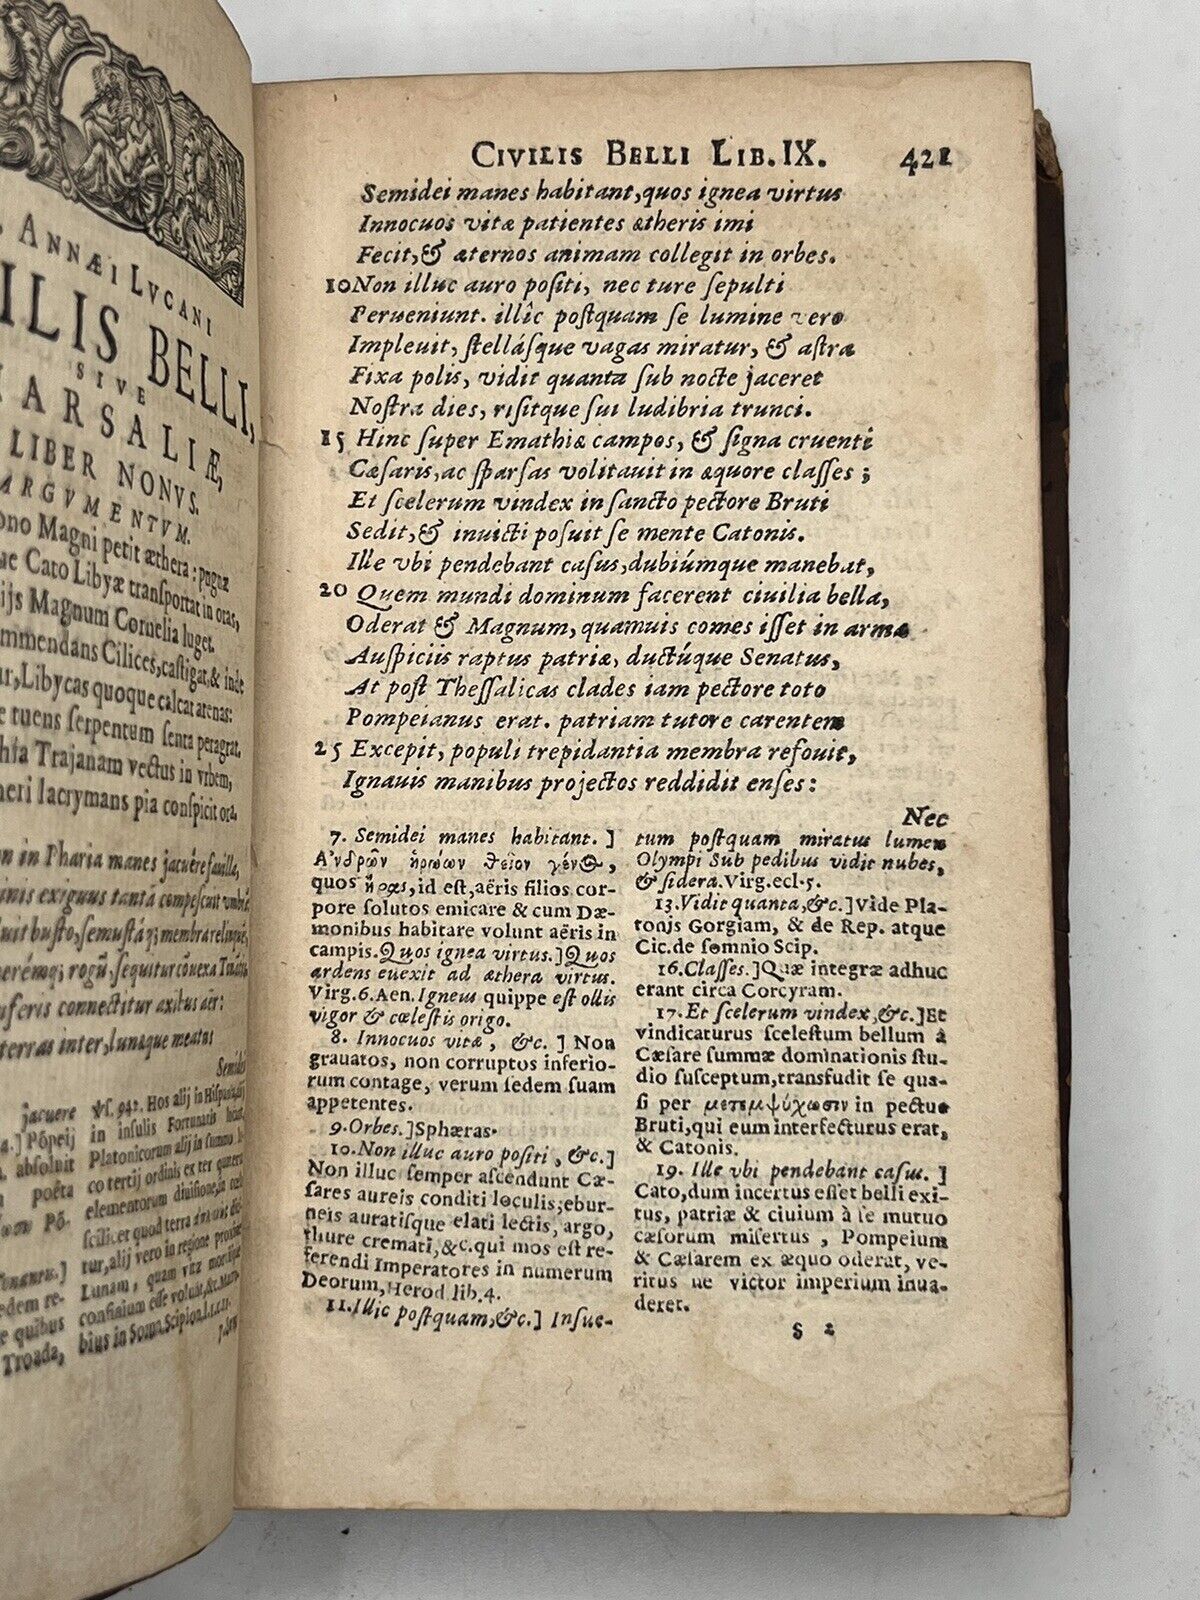 ANNÆI LVCANI
ILIS BELLI,
SIVE
ARSALIÆ,
LIBER NONVS.
ARGVMENTVM.
ono Magni petit æthera: pugnæ
ue Cato Libyæ transportat in oras,
ijs Magnum Cornelia luget.
mmendans Cilices, castigat, & inde
ur, Libycas quoque calcat arenas:
e tuens serpentum senta peragrat.
hſa Trajanam vectus in vrbem,
neri lacrymans pia conspicit ora.
on in Pharia manes jacuêre fauilla,
inis exiguus tantā compescuit vmbrā:
luit busto, semustáq; membra relinquēs,
terras inter, lunaque meatus
Semidei
jacuere
a.] Pōpeij
absoluit
poëta
Pō-
edem re-
e quibus
Troada,
℣ſ. 942. Hos alij in Hispania, alij
in insulis Fortunatis locant,
Platonicorum alij in summo lo-
co tertij ordinis ex ter quaterna
elementorum diuisione, in cœlo
scilicet quod terra
tur, alij vero in regione proxime
Lunam, quam vitæ mortisque
confinium esse voluit, &c. Macro-
bius in Somn. Scipion. l. 1. c. 11.
CIVILIS BELLI LIB. IX. 421
Semidei manes habitant, quos ignea virtus
Innocuos vitæ patientes ætheris imi
Fecit, & æternos animam collegit in orbes.
10 Non illuc auro positi, nec ture ſepulti
Perueniunt. illîc poſtquam ſe lumine vero
Impleuit, ſtellásque vagas miratur, & aſtra
Fixa polis, vidit quanta ſub nocte jaceret
Noſtra dies, riſitque ſui ludibria trunci.
15 Hinc ſuper Emathiæ campos, & ſigna cruenti
Cæſaris, ac ſparſas volitauit in æquore claſſes;
Et ſcelerum vindex in ſancto pectore Bruti
Sedit, & inuicti poſuit ſe mente Catonis.
Ille vbi pendebant caſus, dubiúmque manebat,
20 Quem mundi dominum facerent ciuilia bella,
Oderat & Magnum, quamuis comes iſſet in arma
Auſpiciis raptus patriæ, ductúque Senatus,
At poſt Theſſalicas clades iam pectore toto
Pompeianus erat. patriam tutore carentem
25 Excepit, populi trepidantia membra refouit,
Ignauis manibus projectos reddidit enſes:
Nec
7. Semidei manes habitant. ]
Ἀνδρῶν ἡρώων θεῖον γένος,
quos ἥρας, id eſt, aëris filios cor-
pore ſolutos emicare & cum Dæ-
monibus habitare volunt aëris in
campis. Quos ignea virtus. ] Quos
ardens euexit ad æthera virtus.
Virg. 6. Aen. Igneus quippe eſt ollis
vigor & cœleſtis origo.
8. Innocuos vitæ, &c. ] Non
grauatos, non corruptos inferio-
rum contage, verum ſedem ſuam
appetentes.
9. Orbes. ] Sphæras.
10. Non illuc auro poſiti, &c. ]
Non illuc ſemper aſcendunt Cæ-
ſares aureis conditi loculis; ebur-
neis auratiſque elati lectis, argo,
thure cremati, &c. qui mos eſt re-
ferendi Imperatores in numerum
Deorum, Herod lib. 4.
11. Illic poſtquam, &c. ] Inſue-
tum poſtquam miratus lumen
Olympi Sub pedibus vidit nubes,
& ſidera. Virg. ecl. 5.
13. Vidit quanta, &c. ] Vide Pla-
tonjs Gorgiam, & de Rep. atque
Cic. de ſomnio Scip.
16. Claſſes. ] Quæ integræ adhuc
erant circa Corcyram.
17. Et ſcelerum vindex, &c. ] Et
vindicaturus ſceleſtum bellum à
Cæſare ſummæ dominationis ſtu-
dio ſuſceptum, transfudit ſe qua-
ſi per μετεμψύχωσιν in pectus
Bruti, qui eum interfecturus erat,
& Catonis.
19. Ille vbi pendebant caſus. ]
Cato, dum incertus eſſet belli exi-
tus, patriæ & ciuium à ſe mutuo
cæſorum miſertus, Pompeium
& Cæſarem ex æquo oderat, ve-
ritus ne victor imperium inua-
deret.
S 2